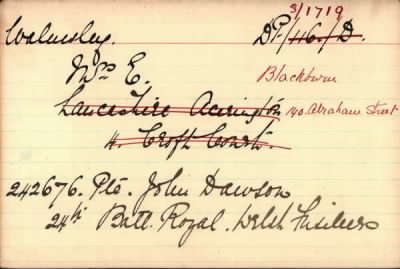 3/1719
Walmsley. DP./116./D.
Mrs E. Blackburn
Lancashire Accrington 140. Abraham Street
4. Croft Court.
242676. Pte. John Dawson
24th Batt. Royal. Welsh Fusiliers